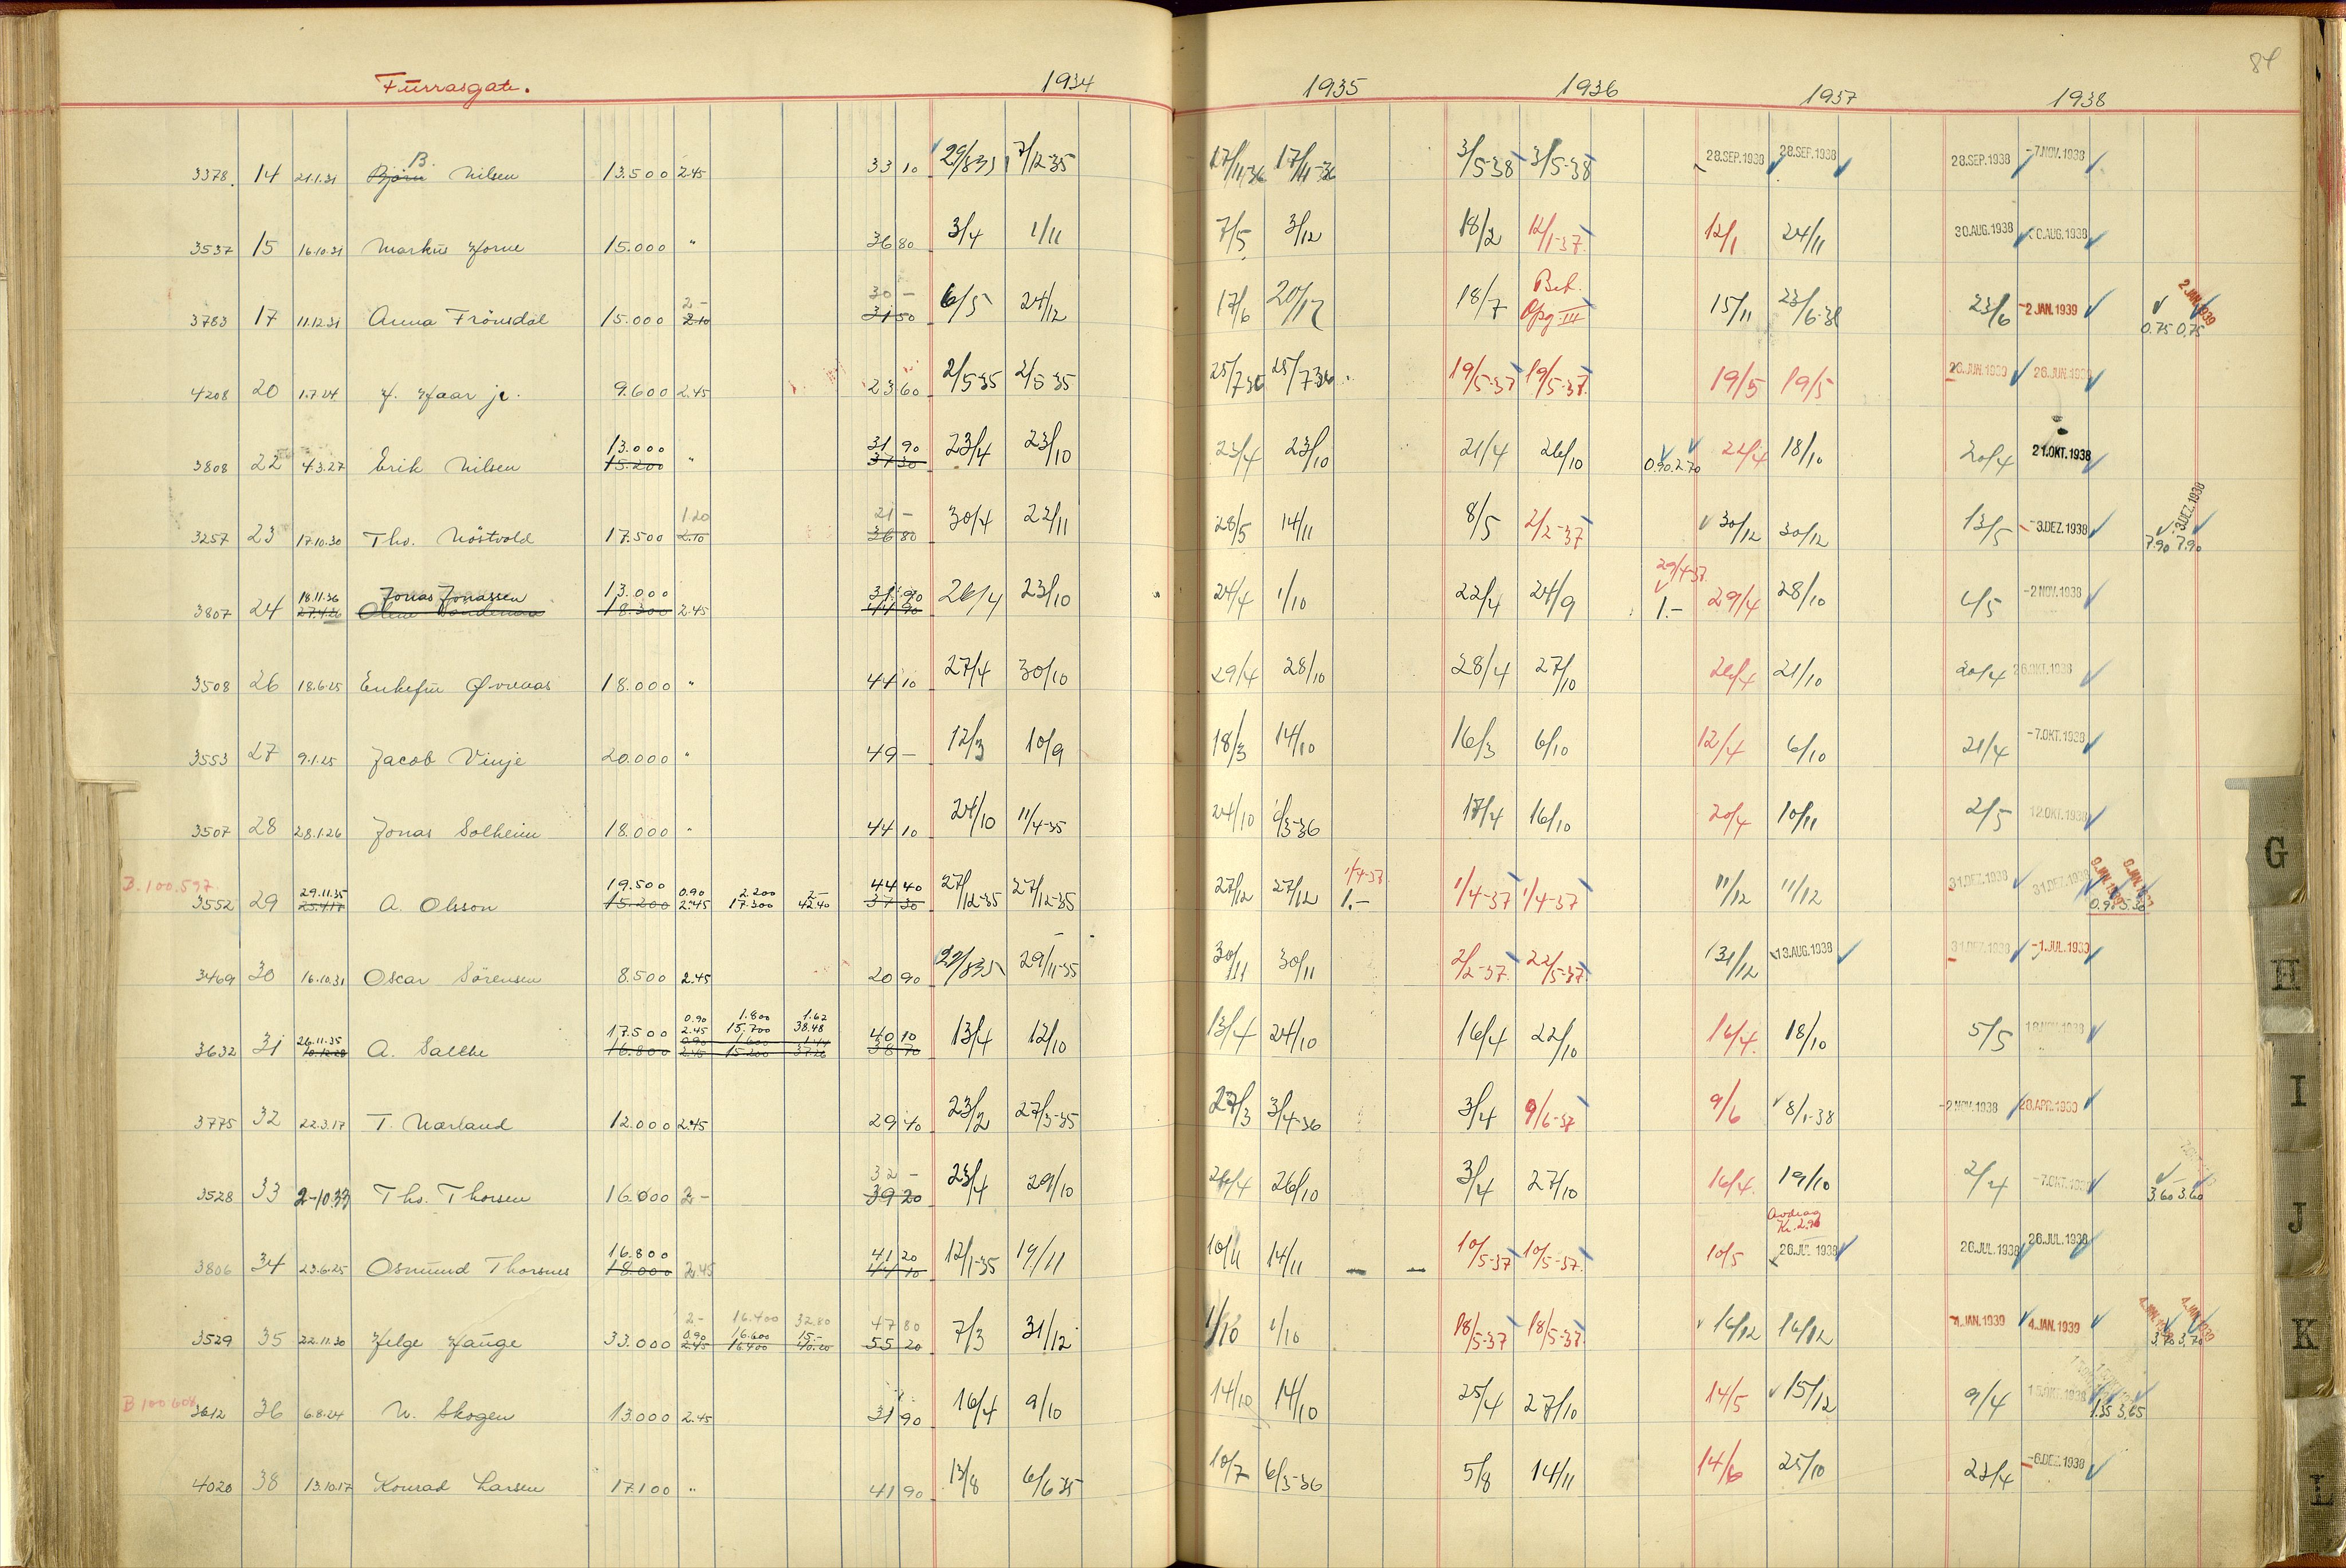 84
Furrasgate. 1934 1935 1936 1937 1938
B.
3378. 14 21.1.31 Bjørn Nilsen 13.500 2.45 33 10 29/8 35 7/12-35 17/11-36 17/11-36 3/5-38 3/5-38 28.SEP.1938 28.SEP.1938 28.SEP.1938 -7.NOV.1938
3537 15 16.10.31 Markus 15.000 " 36 80 3/4 1/11 7/5 3/12 18/2 12/1-37. 12/1 24/11 30.AUG.1938 30.AUG.1938
2- 30 - Bet. 2 JAN. 1939
3783 17 11.12.31 Anna Frönsdal 15.000 2.10 31 50 6/5 24/12 17/6 20/12 18/7 Opg III 15/11 23/6-38 23/6 -2 JAN.1939 0.75 0.75
4208 20 1.7.24 jr. 9.600 2.45 23 60 2/5-35 2/5-35 25/7-36 25/7-36 19/5-37 19/5-37. 19/5 19/5 26.JUN.1939 26.JUN.1939
13.000 31 90
3808 22 4.3.27 Erik Nilsen 15.200 " 37 30 23/4 23/10 23/4 23/10 21/4 26/10 0.90 2.70 22/4 18/10 20/4 21.OKT.1938
1.20 21 - 3.DEZ.1938
3257 23 17.10.30 Ths. Nöstvold 17.500 2.10 36 80 30/4 22/11 28/5 14/11 8/5 2/2-37 30/12 30/12 13/5 -3.DEZ.1938 7.90 7.90
18.11.36 Jonas Jonassen 13.000 31.90 29/4-37
3807 24 27.4.26 18.300 2.45 44 90 26/4 23/10 24/4 1/10 22/4 24/9 1.- 29/4 28/10 4/5 -2 NOV.1938
3508 26 18.6.25 Enkefru 18.000 " 44 10 27/4 30/10 29/4 28/10 28/4 27/10 26/4 21/10 20/4 26.OKT.1938
3553 27 9.1.25 Jacob Vinje 20.000 " 49 - 12/3 10/9 18/3 14/10 16/3 6/10 12/4 6/10 21/4 -7.OKT.1938
3507 28 28.1.26 Jonas Solheim 18.000 " 44 10 24/10 11/4-35 24/10 6/3-36 17/4 16/10 20/4 10/11 2/5 12.OKT.1938
B.100.597 29.11.35 19.500 0.90 2.200 2- 44 40 1/4-37
3552 29 23.4.17 A. Olsson 15.200 2.45 17.300 42.40 37 30 27/12-35 27/12-35 27/12 27/12 1.- 1/4-37 1/4-37 11/12 11/12 31.DEZ.1938 31.DEZ.1938
3469 30 16.10.31 Oscar Sörensen 8.500 2.45 20 90 22/8 35 29/11-35 30/11 30/11 2/2-37. 22/5-37 31/12 13.AUG.1938 31.DEZ.1938 -1.JUL.1939
0.90 1.800 1.62
26.11.35 17.500 2.45 15.700 38.48 40 10
3632 31 10.12.28 A. 16.800 2.45 15.200 37.26 38 70 13/4 12/10 13/4 24/10 16/4 22/10 16/4. 18/10 5/5 18.NOV.1938
3775 32 22.3.17 T. Narland 12.000 2.45 29 40 23/2 27/3-35 27/3 3/4-36 3/4 9/6-37 9/6 8/1-38 -2 NOV.1938 28.APR.1939
32 -
3528 33 2-10.33 Ths. Thorsen 16.000 2- 39 20 23/4 29/10 26/4 26/10 3/4 27/10 16/4. 19/10 2/4 -7.OKT.1938 3.60 3.60
Avdrag
16.800 41 20 Kr. 2.90
3806 34 23.6.25 Osmund Thorsnes 18.000 2.45 44 10 12/1-35 19/11 10/4 14/11 - - 10/5-37 10/5-37. 10/5 26.JUL 1938 26.JUL.1938 26.JUL.1938
2- 16.400 32.80 47 80
0.90 16.600 15.- 4.JAN.1939 4.JAN.1939
3529 35 22.11.30 Helge Hauge 33.000 2.45 16.400 40.20 55 20 7/3 31/12 1/10 1/10 18/5-37 18/5-37. 16/12 16/12 -4.JAN.1939 4.JAN.1939 3.70 3.70
B 100 608
3612 36 6.8.24 N. Skogen 13.000 2.45 31 90 16/4 9/10 14/10 14/10 25/4 27/10 14/5 15/12 9/4 1.35 3.65
4020 38 13.10.17 Konrad Larsen 17.100 " 41 90 13/8 6/6 35 10/7 6/3-36 5/8 14/11 14/6 25/10 23/4 -6.DEZ.1938
G
H
I
J
K
L